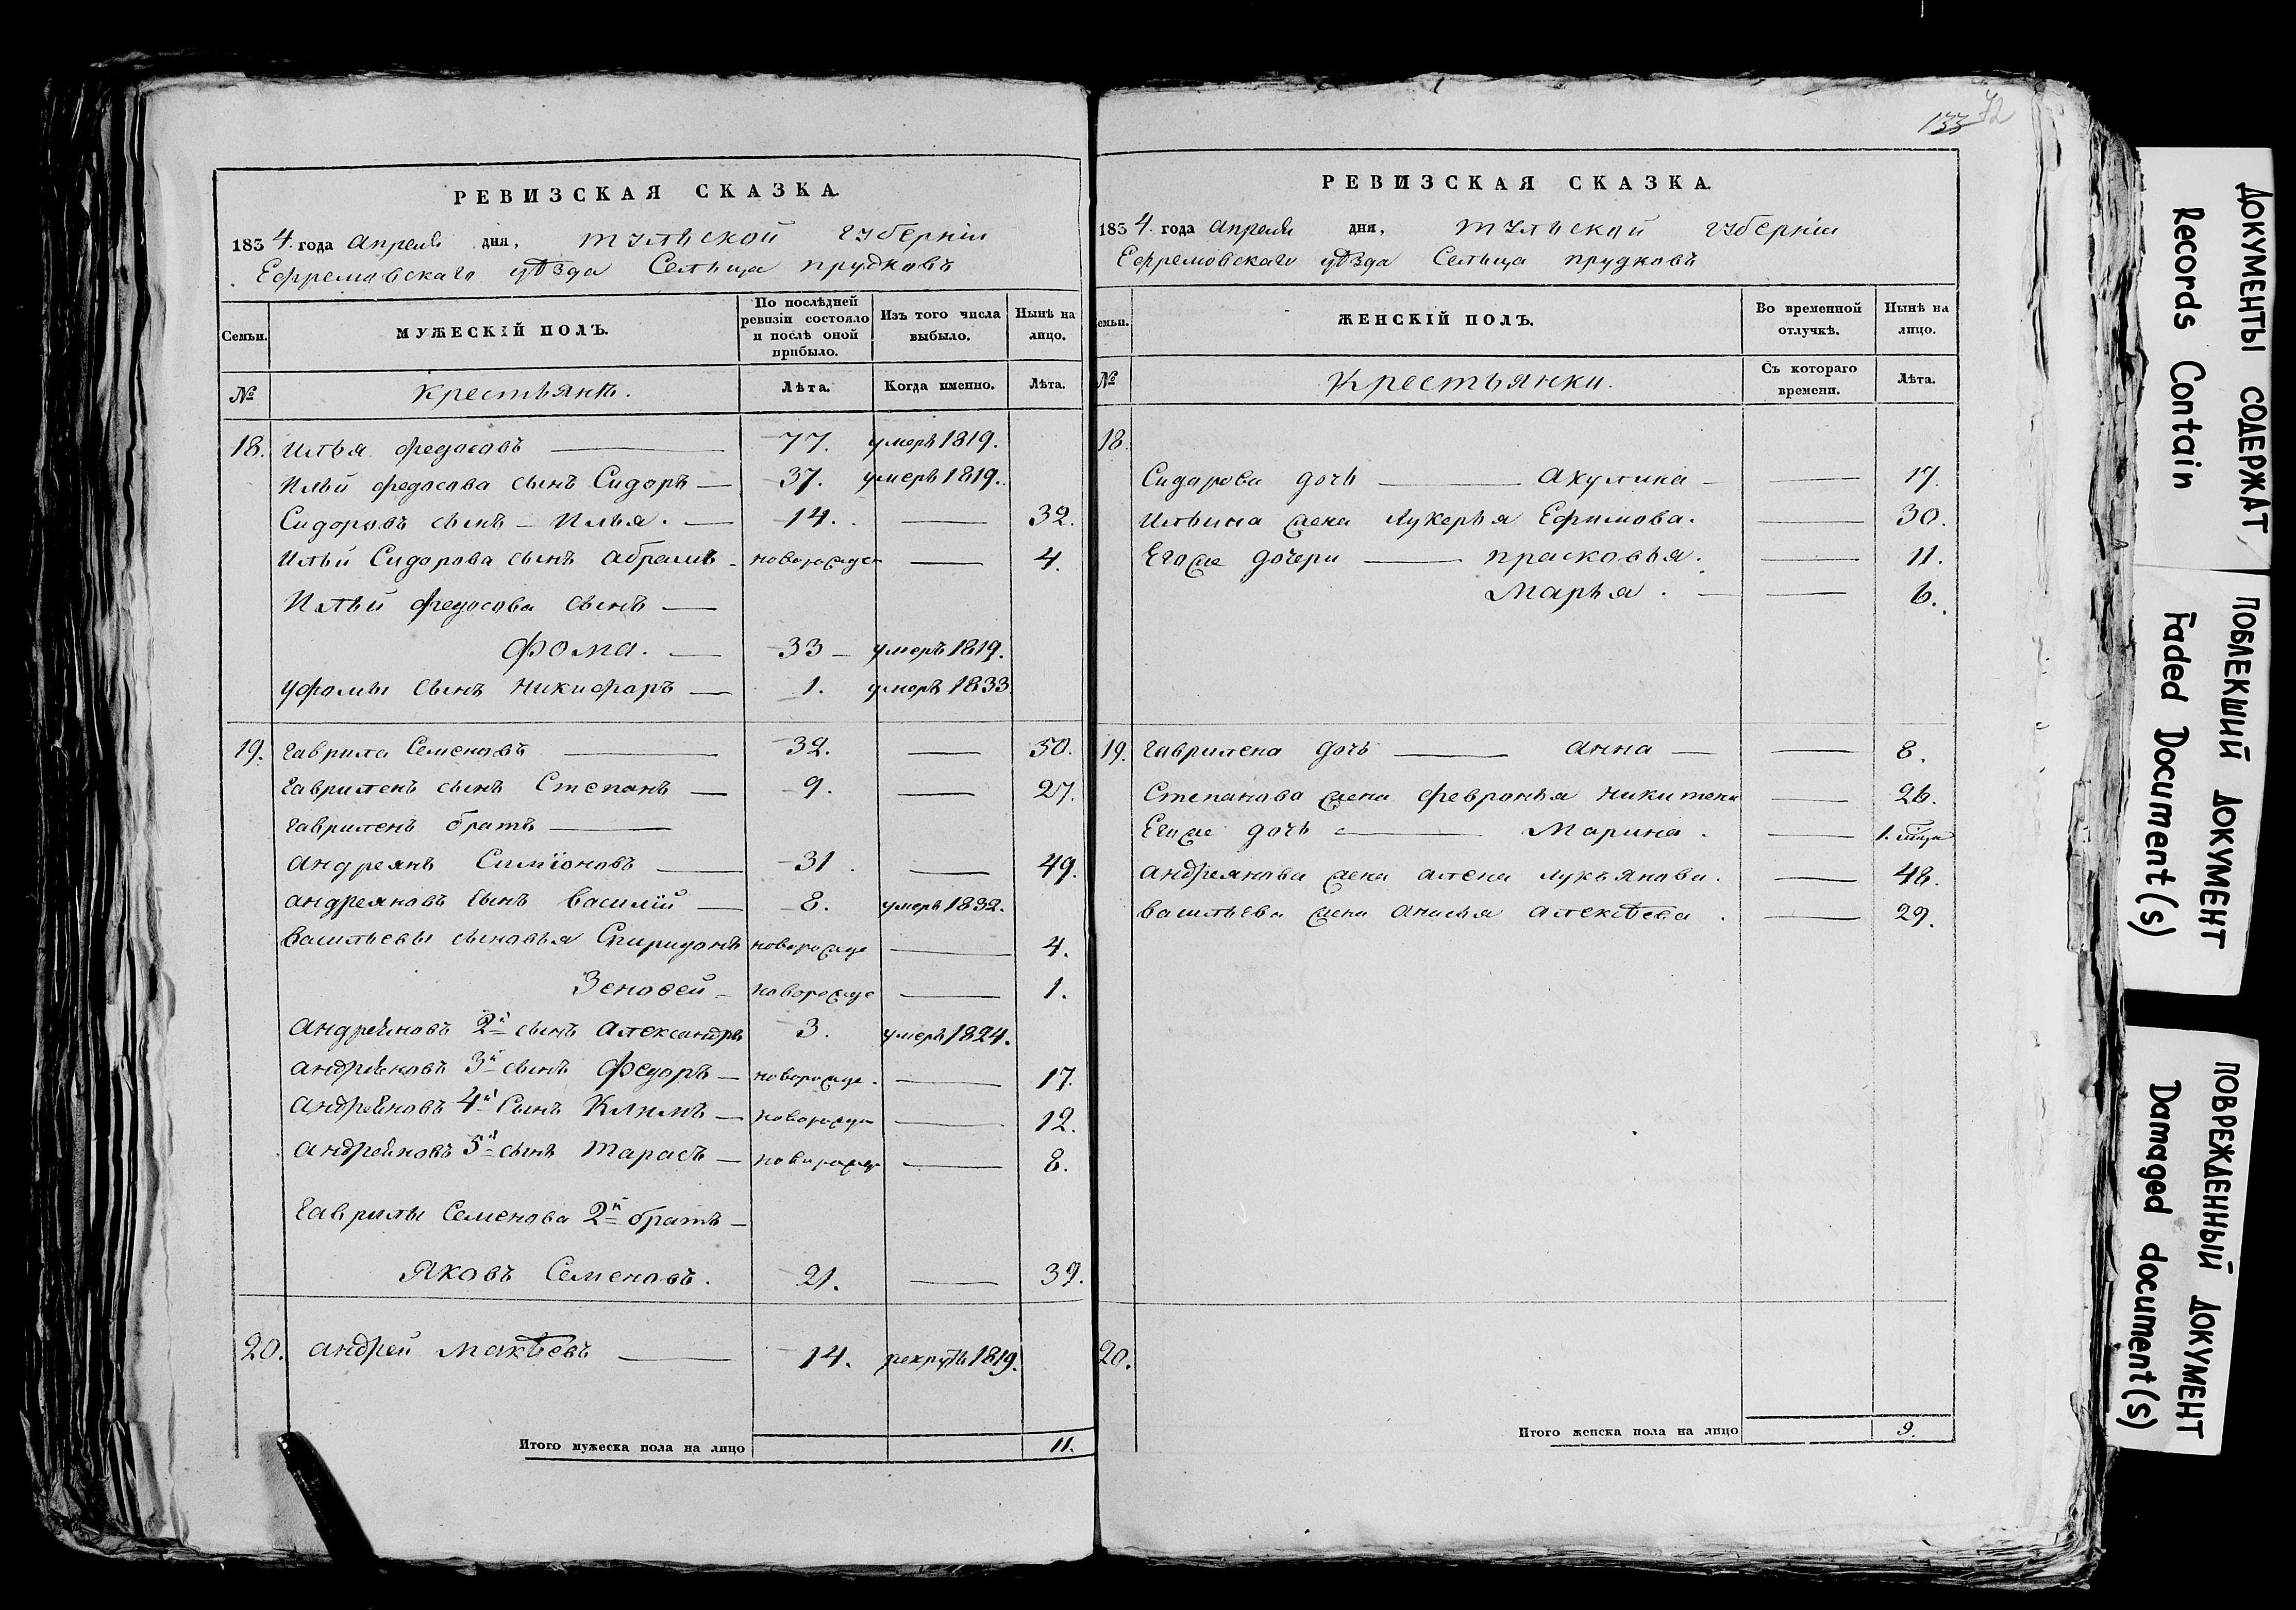 РЕВИЗСКАЯ СКАЗКА.
1834. года апреля дня, тульской губернiи
Ефремовскаго уѣзда Сельца прудковъ
Семьи.
МУЖЕСКIЙ ПОЛЪ.
По послѣдней ревизiи состояло и послѣ оной прибыло.
Изъ того числа выбыло.
Нынѣ на лицо.
№
Крестьянѣ.
Лѣта.
Когда именно.
Лѣта.
18. Илья федосовъ 77. умеръ 1819.
Ильи федосова сынъ Сидоръ 37. умеръ 1819.
Сидоровъ сынъ Илья. 14. 32.
Ильи Сидорова сынъ абрамъ новорожден 4.
Ильи федосова сынъ
фома. 33 умеръ 1819.
уфомы сынъ никифаръ 1. умеръ 1833.
19. гаврила Семеновъ 32. 50.
гавриленъ сынъ Степанъ 9. 27.
гавриленъ братъ
андреянъ Симiоновъ 31. 49.
андреяновъ сынъ василiй 8. умеръ 1832.
васильевы сыновья Спиридонъ новорожде 4.
Зеновей новорожде 1.
андреяновъ 2й сынъ александръ 3. умеръ 1824.
андреяновъ 3й сынъ Федоръ новорожде. 17.
андреяновъ 4й сынъ Климъ новорожде 12.
андреяновъ 5й сынъ тарасъ новорожде 8.
гаврилы Семенова 2й братъ
Яковъ Семеновъ. 21. 39.
20. андрей мокѣевъ 14. рекрутъ 1819.
Итого мужеска пола на лицо 11.
133 72
РЕВИЗСКАЯ СКАЗКА.
1834. года апреля дня, тульской губернiи
Ефремовскаго уѣзда Сельца прудковъ
емьи.
ЖЕНСКIЙ ПОЛЪ.
Во временной отлучкѣ.
Нынѣ на лицо.
№
Крестьянки.
Съ котораго времени.
Лѣта.
18.
Сидорова дочь акулина 17.
Ильина жена лукерья Ефимова. 30.
Егоже дочери прасковья. 11.
Марья. 6.
19. гаврилена дочь анна 8.
Степанова жена февронья никитена 26.
Егоже дочь Марина. 1.
андреянова жена алена лукъянова. 48.
васильева жена анисья алексѣева. 29.
20.
Итого женска пола на лицо 9.
ДОКУМЕНТЫ СОДЕРЖАТ
Records Contain
ПОБЛЕКШИЙ ДОКУМЕНТ
Faded Document(s)
ПОВРЕЖДЕННЫЙ ДОКУМЕНТ
Damaged document(s)